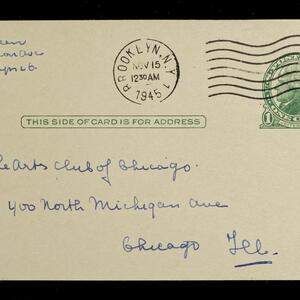 BROOKLYN, N.Y. 1
NOV 15
12 30 AM
1945
1
THIS SIDE OF CARD IS FOR ADDRESS
Arts Club of Chicago.
400 North Michigan Ave
Chicago Ill.